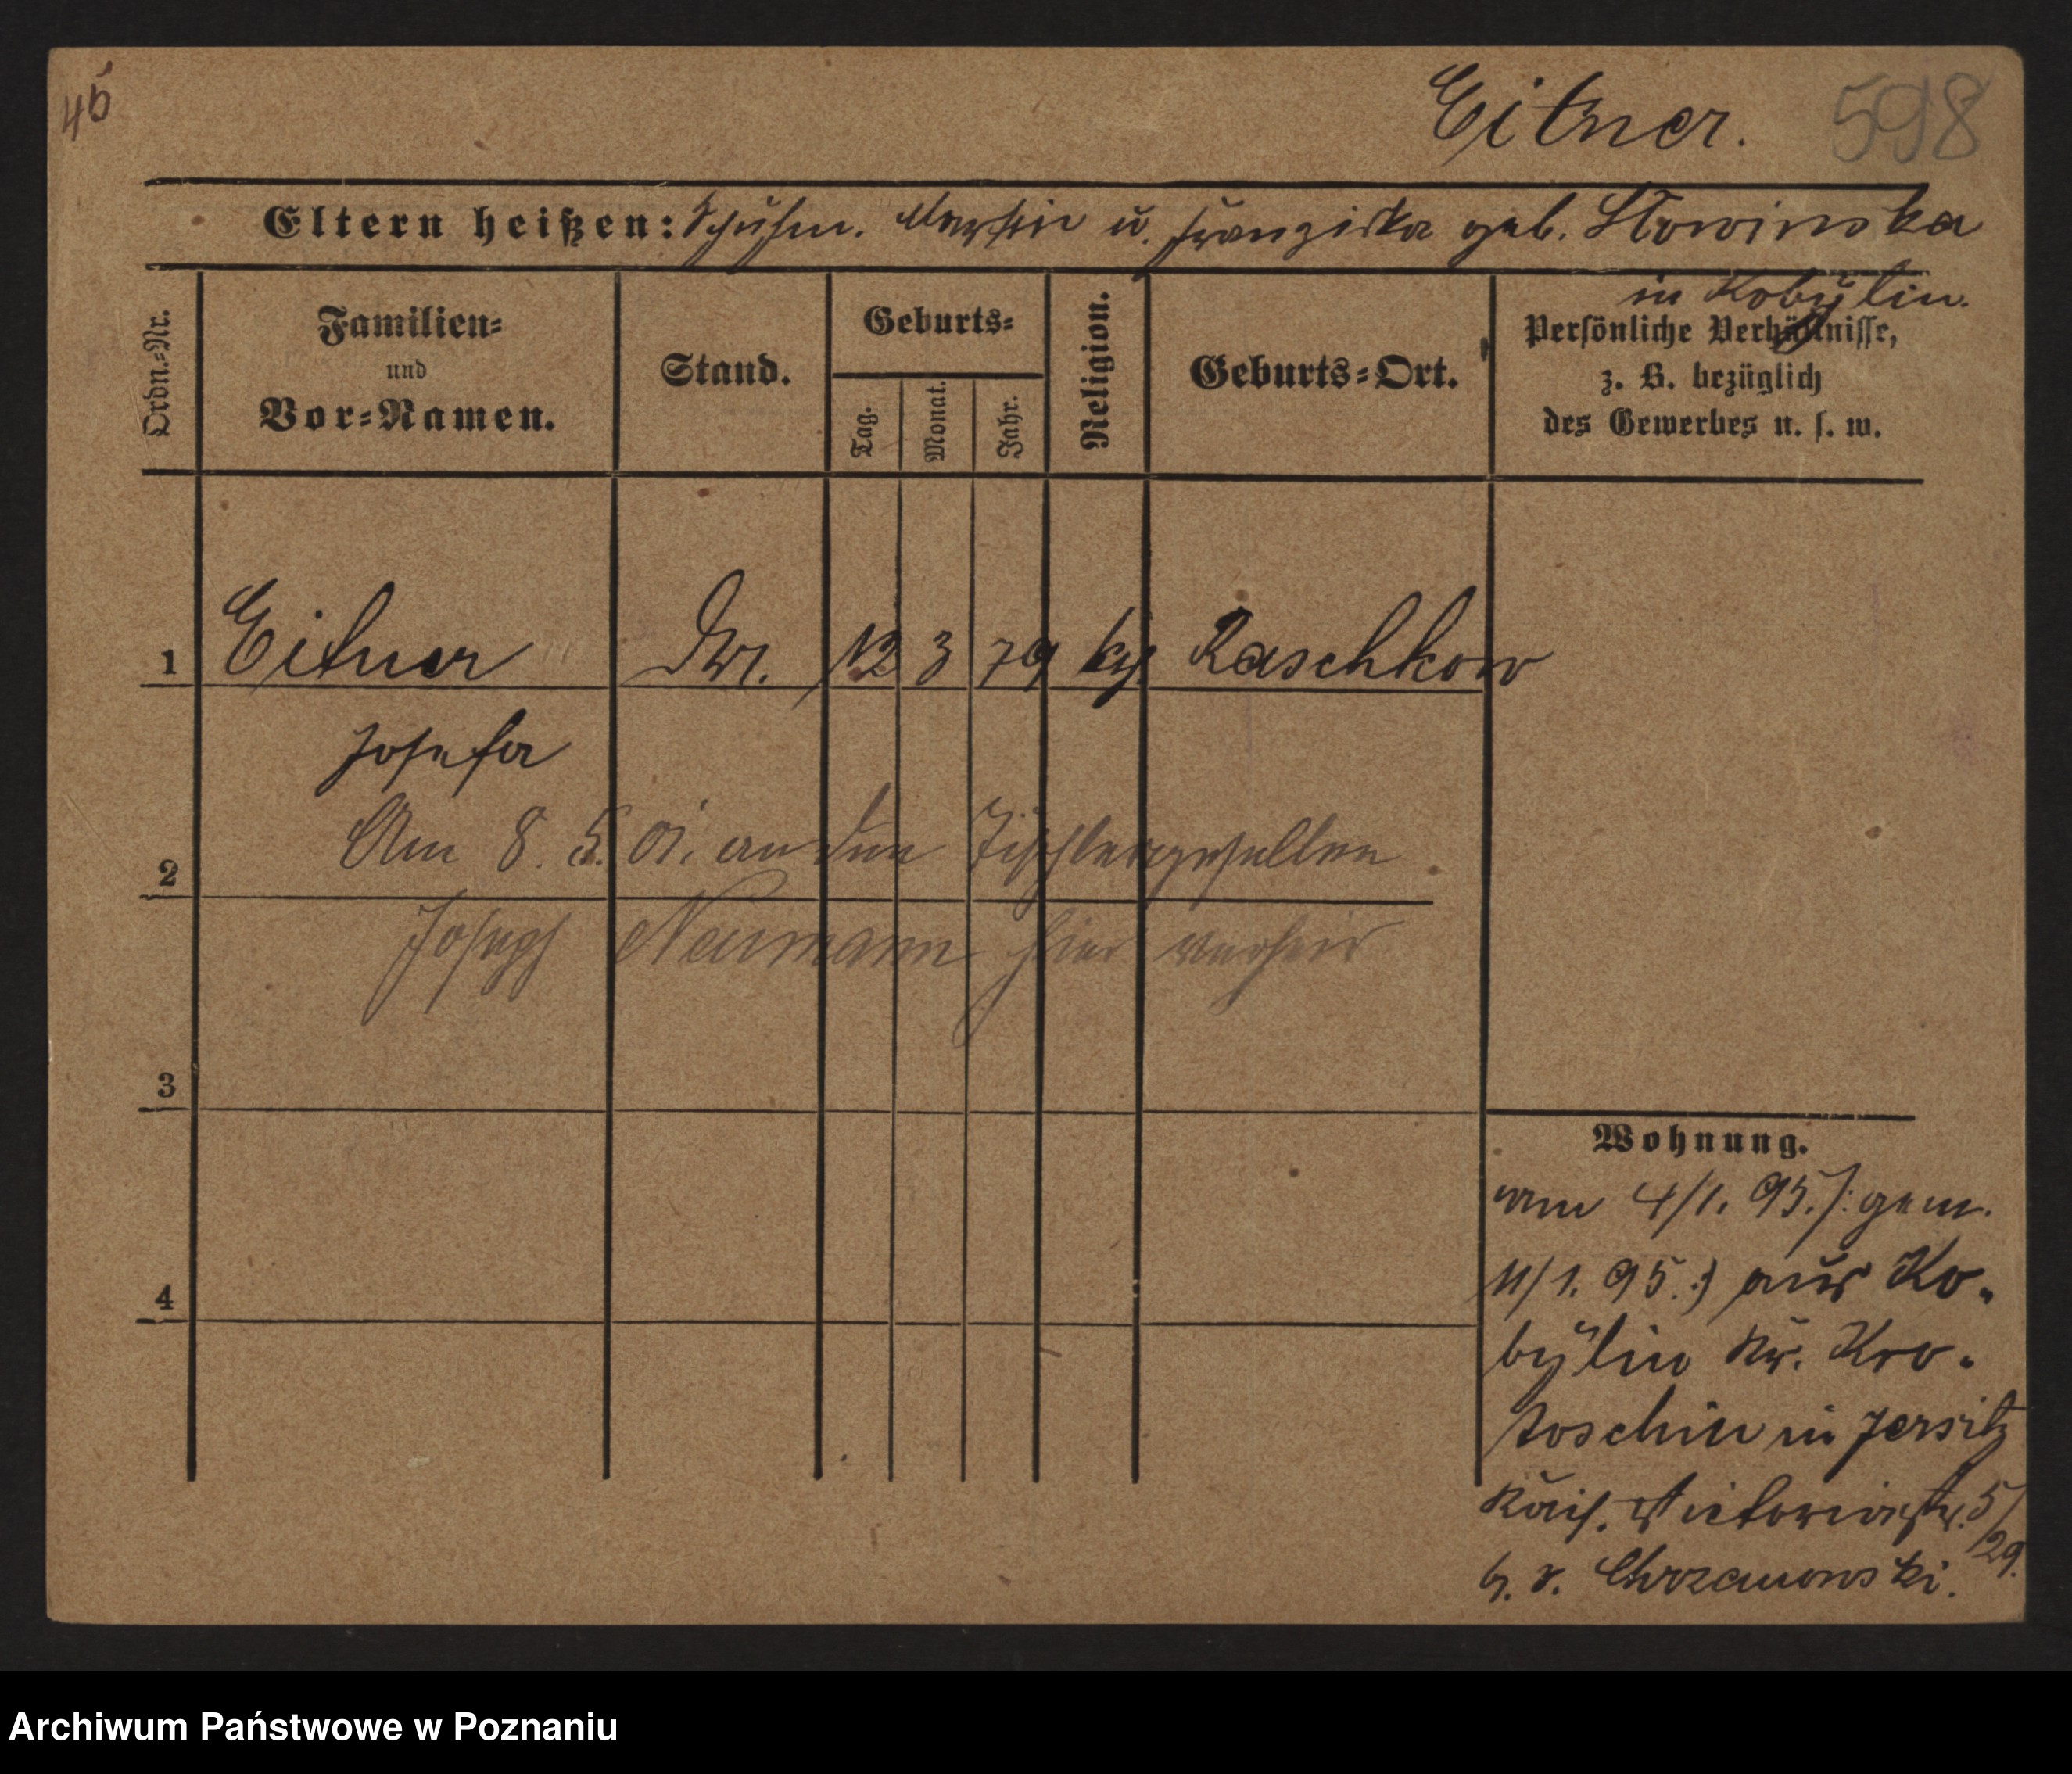 45
Eitner.
598
Eltern heißen: Schuhm. Martin u. Franziska geb. Slowinska
in Kobylin.
Ordn.-Nr.
Familien-
und
Vor-Namen.
Stand.
Geburts-
Tag.
Monat.
Jahr.
Religion.
Geburts-Ort.
Persönliche Verhältnisse,
z. B. bezüglich
des Gewerbes u. s. w.
1 Eitner 12 3 79 Raschkow
Josefa
Am 8. 5. 01. an den Tischlergesellen
2
Joseph Neumann hier verheir
3
Wohnung.
am 4/1. 95. /: gem.
11/1. 95. :/ aus Ko-
4
bylin Kr. Kro-
toschin in Jersitz
Kais. Victoriastr. 5/
29.
b. v. Chrzanowski.
Archiwum Państwowe w Poznaniu